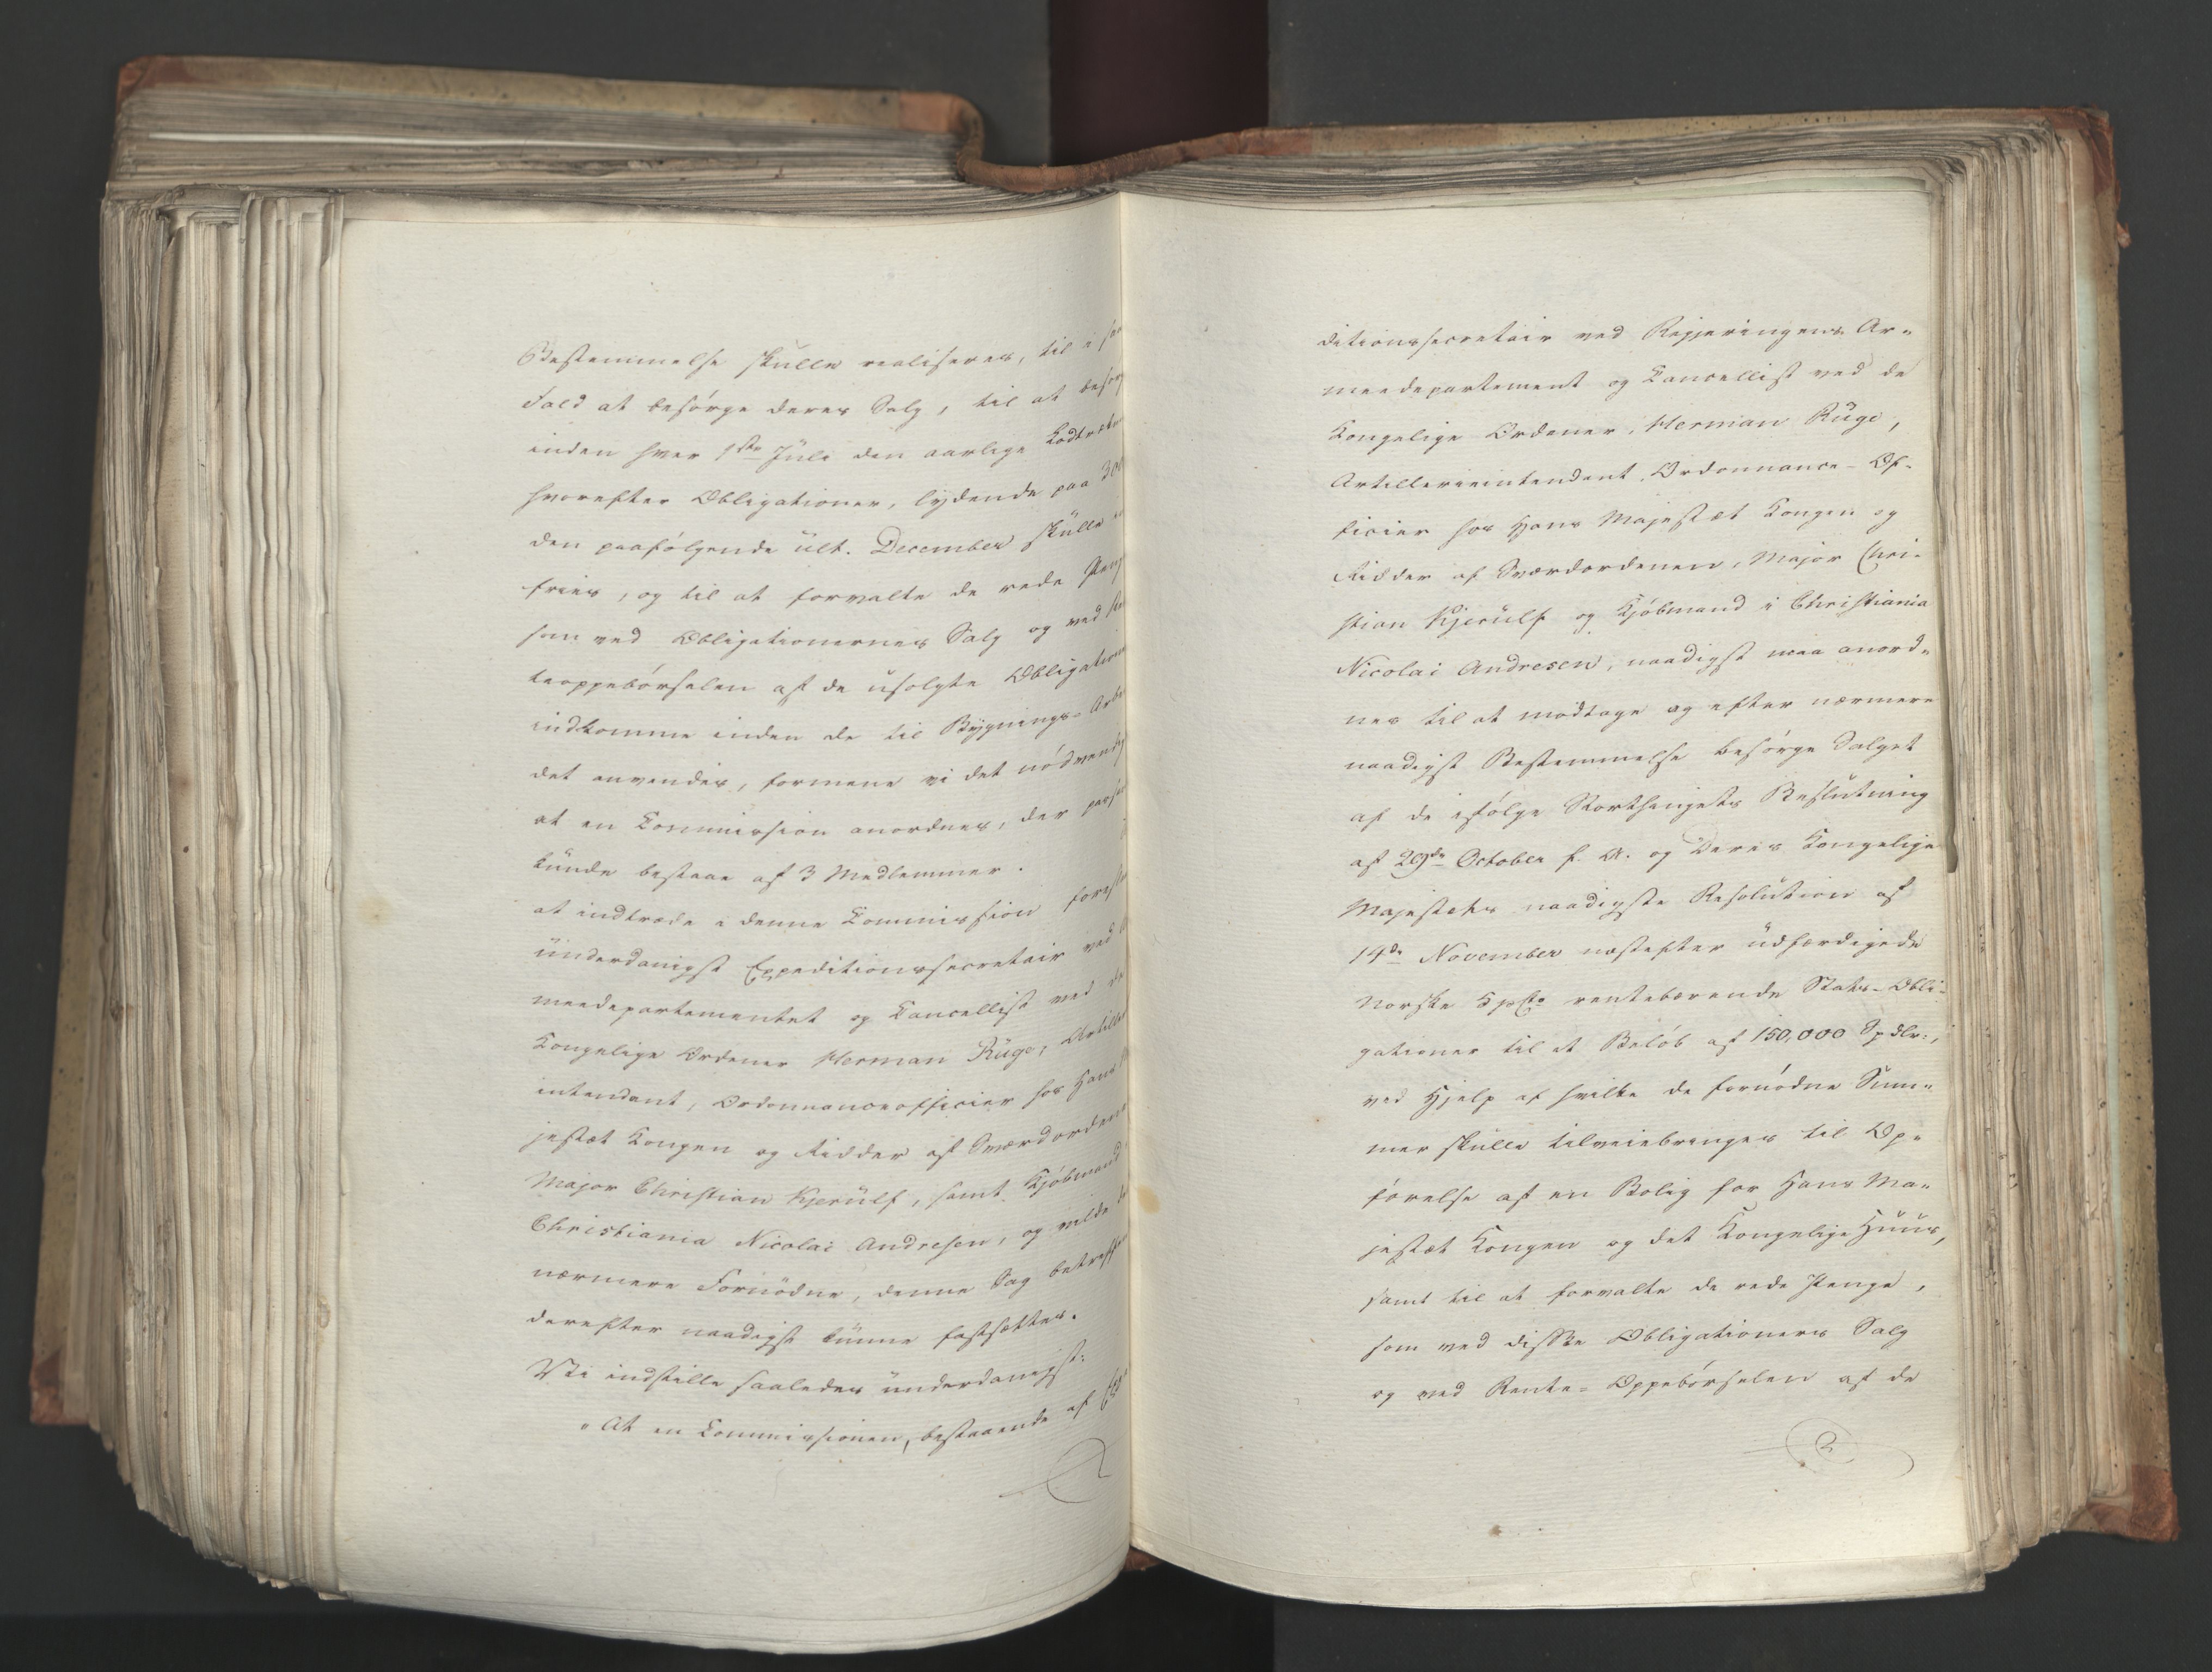 Bestemmelse skulle realiseres, til i saa
Fald at besørge deres Salg, til at besørg
inden hver 1ste Júli den aarlige Lodtrækn
hvorefter Obligationer, lydende paa 300
den paafølgende últ. December skúlle
fries, og til at forvalte de rede Peng
som ved Obligationernes Salg og ved
teoppebørselen af de úsolgte Obligation
indkomme inden de til Bygnings-Arbei
det anvendes, formene vi det nødvendig
at en Commission anordnes, der
kúnde bestaae af 3 Medlemmer.
At indtræde i denne Commission foresl
únderdanigst Expeditionssecretair ved
meedepartementet og Cancellist ved de
Kongelige Ordener Herman Rúge, Artille
intendant, Ordonnanceofficier hos Hans
jestæt Kongen og Ridder af Sværdordene
Major Christian Kjerúlf, samt Kjøbmand
Christiania Nicolai Andresen, og vilde
nærmere Fornødne, denne Sag betreffen
derefter naadigst kúnne fastsættes.
Vi indstille saaledes únderdanigst:
"At en Commissionen, bestaaende af Expe
ditionssecretair ved Regjeringens Ar-
meedepartement og Cancellist ved de
Kongelige Ordener, Herman Rúge,
Artillerieintendant, Ordonnance-Of-
ficier hos Hans Majestæt Kongen og
Ridder af Sværdordenen, Major Chri-
stian Kjerúlf og Kjøbmand i Christiania
Nicolai Andresen, naadigst maa anord-
nes til at modtage og efter nærmere
naadigst Bestemmelse besørge Salget
af de ifølge Storthingets Beslútning
af 29de October f. A. og Deres Kongelige
Majestæts naadigste Resolútion af
14de November næstefter údfærdigede
Norske 5 pCto rentebærende Stats-Obli-
gationer til et Beløb af 150,000 Spdlr.,
ved Hjelp af hvilke de fornødne Sum-
mer skúlle tilveiebringes til Op-
førelse af en Bolig for Hans Ma-
jestæt Kongen og det Kongelige Húús,
samt til at forvalte de rede Penge,
som ved disse Obligationers Salg
og ved Rente-Oppebørselen af de